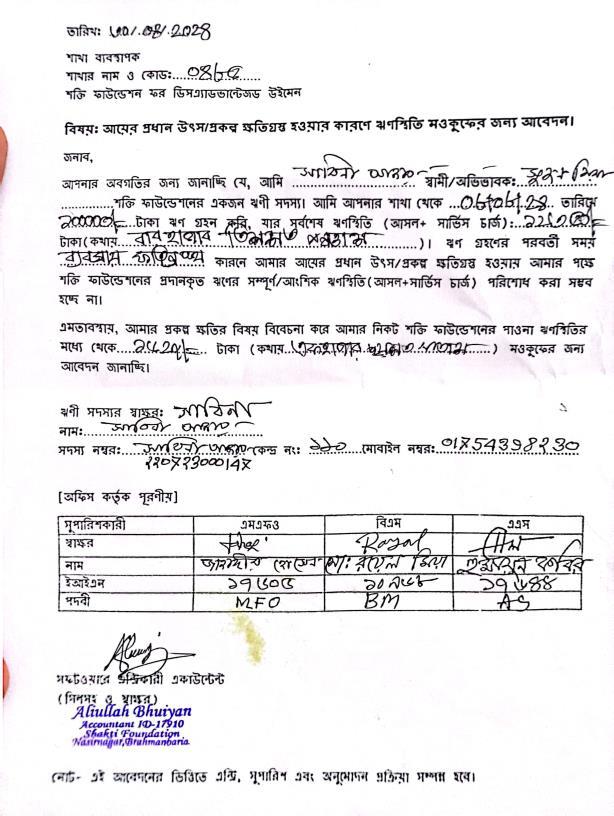 তারিখ: ৩০/.০৪/.২০২৪
শাখা ব্যবস্থাপক
শাখার নাম ও কোড:....০৪৮৫......
শক্তি ফাউন্ডেশন ফর ডিসএ্যাডভান্টেজড উইমেন
বিষয়: আয়ের প্রধান উৎস/প্রকল্প ক্ষতিগ্রস্ত হওয়ার কারণে ঋণস্থিতি মওকুফের জন্য আবেদন।
জনাব,
আপনার অবগতির জন্য জানাচ্ছি যে, আমি সাবিনা আক্তার স্বামী/অভিভাবক:
শক্তি ফাউন্ডেশনের একজন ঋণী সদস্য। আমি আপনার শাখা থেকে তারিখে
টাকা ঋণ গ্রহন করি, যার সর্বশেষ ঋণস্থিতি (আসল+ সার্ভিস চার্জ):
টাকা(কথায় )। ঋণ গ্রহণের পরবর্তী সময়
কারনে আমার আয়ের প্রধান উৎস/প্রকল্প ক্ষতিগ্রস্ত হওয়ায় আমার পক্ষে
শক্তি ফাউন্ডেশনের প্রদানকৃত ঋণের সম্পূর্ণ/আংশিক ঋণস্থিতি(আসল+সার্ভিস চার্জ) পরিশোধ করা সম্ভব
হচ্ছে না।
এমতাবস্থায়, আমার প্রকল্প ক্ষতির বিষয় বিবেচনা করে আমার নিকট শক্তি ফাউন্ডেশনের পাওনা ঋণস্থিতির
মধ্যে থেকে টাকা (কথায় ) মওকুফের জন্য
আবেদন জানাচ্ছি।
ঋণী সদস্যের স্বাক্ষর: সাবিনা
নাম: সাবিনা আক্তার
সদস্য নম্বর: সাবিনা আক্তার কেন্দ্র নং: ১১০ মোবাইল নম্বর: 01754398230
[অফিস কর্তৃক পূরণীয়]
সুপারিশকারী এমএফও বিএম এএস
স্বাক্ষর Royal
নাম জাহাঙ্গীর হোসেন মো: রয়েল মিয়া হুমায়ুন কবির
ইআইএন ১৭৬৪৪
পদবী MFO BM AS
সফটওয়ারে এন্ট্রিকারী একাউন্টেন্ট
(সিলসহ ও স্বাক্ষর)
Aliullah Bhuiyan
Accountant ID-17910
Shakti Foundation
Nasirnagar,Brahmanbaria.
নোট- এই আবেদনের ভিত্তিতে এন্ট্রি, সুপারিশ এবং অনুমোদন প্রক্রিয়া সম্পন্ন হবে।